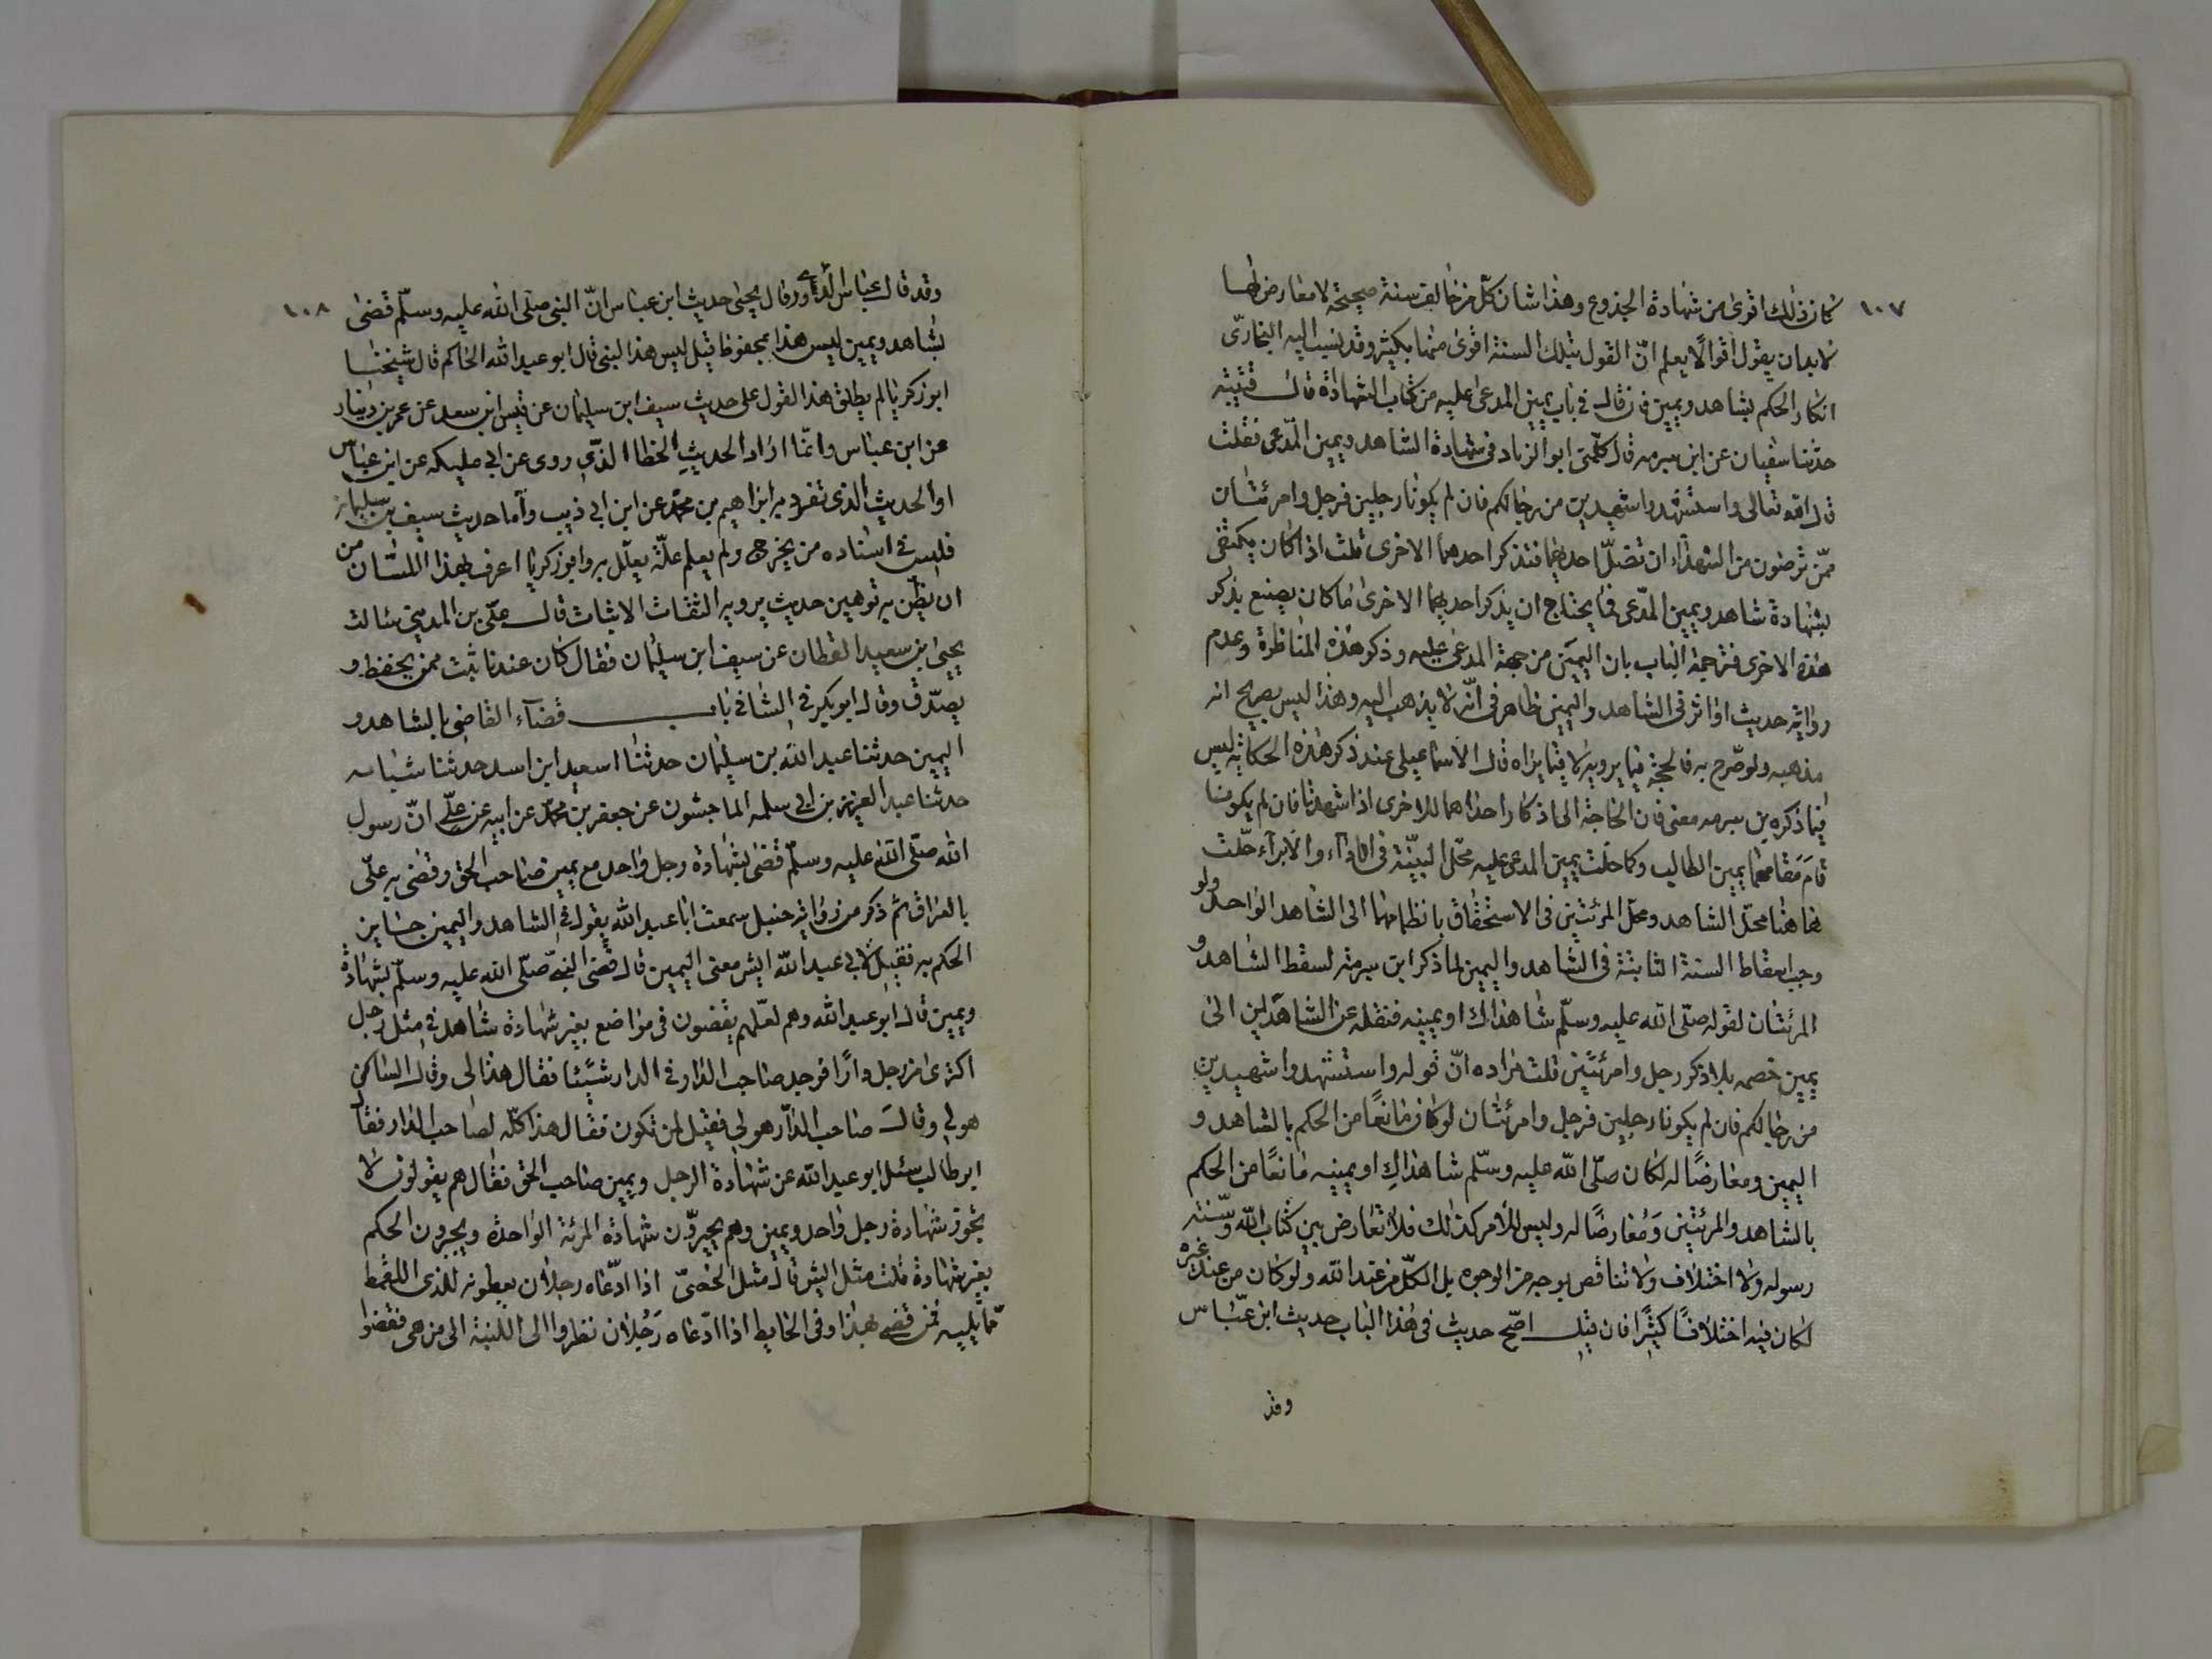 ١٠٧
كان ذلك اقوى من شهادة الجذوع وهذا شان كل من خالف سنة صحيحة لا معارض لها
لا بد ان يقول اقوالا يعلم انّ القول بتلك السنة اقوى منها بكثير وقد نسب اليه البخارىّ
انكار الحكم بشاهد ويمين فان قال فى باب يمين المدعى عليه من كتاب الشهادة قال قتيبة
حدّثنا سفيان عن ابن سبرمه قال كلّمنى ابو الزناد فى شهادة الشاهد ويمين المدّعى فقلت
قال الله تعالى واستشهدوا شهيدين من رجالكم فان لم يكونا رجلين فرجل وامرئتان
ممّن ترضون من الشهداء ان تضلّ احديهما فتذكر احدهما الاخرى قلت اذا كان يكتفى
بشهادة شاهد ويمين المدّعى فما يحتاج ان يذكر احديهما الاخرى ما كان يصنع بذكر
هذه الاخرى فترجمة الباب بان اليمين من جهة المدعى عليه وذكر هذه المناظرة وعدم
رواية حديث او اثر فى الشاهد واليمين ظاهر فى انّه لا يذهب اليه وهذا ليس بصريح انه
مذهبه ولو صّرح به فالحجة فيما يرويه لا فيما يراه قال الاسماعيلى عند ذكر هذه الحكاية ليس
فيما ذكره بن سبرمه معنى فان الحاجة الى اذكار احداهما للاخرى اذا شهدتا فان لم يكونا
قام مقامهما يمين الطالب وكما حلّت يمين المدعى عليه محّل البيّنة فى الاداء والابرآء حلّت
هاهنا محلّ الشاهد ومحلّ المرئتين فى الاستحقاق بانظمامهما الى الشاهد الواحد ولو
وجب اسقاط السنة الثابتة فى الشاهد واليمين لما ذكر ابن سبرمة لسقط الشاهد و
المرئتان لقوله صلّى الله عليه وسلّم شاهداك او يمينه فنقله عن الشاهدين الى
يمين خصمه بلا ذكر رجل وامرئتين قلت مراده انّ قوله واستشهدوا شهيدين
من رجالكم فان لم يكونا رجلين فرجل وامرئتان لو كان مانعًا من الحكم بالشاهد و
اليمين ومعارضًا له لكان صلّى الله عليه وسلّم شاهداك او يمينه مانعًا من الحكم
بالشاهد والمرئتين ومُعارضًا له وليس الامر كذلك فلا تعارض بين كتاب الله وسّنته
رسوله ولا اختلاف ولا تناقص بوجه من الوجوه بل الكلّ من عند الله ولو كان من عند غيره
لكان فيه اختلافًا كثيرًا فان قيل اصحّ حديث فى هذا الباب حديث ابن عبّاس
وقد
١٠٨
وقد قال عباس الدورى وقال يحيى حديث ابن عباس انّ النبى صلّى الله عليه وسلّم قضى
بشاهد ويمين ليس هذا بمحفوظ قيل ليس هذا البنى قال ابو عبد الله الحاكم قال شيخنا
ابو زكريا لم يطلق هذا القول على حديث سيف ابن سليمان عن قيس ابن سعد عن عمر بن دينار
عن ابن عباس وانّما اراد الحديث الخطاا لذّى روى عن ابى مليكه عن ابن عباس
او الحديث الّذى تفرد به ابراهيم بن محمّد عن ابن ابى ذيب وآما حديث سيف بن سليمان
فليس فى اسناده من يخرج ولم يعلم علّة يعلّل به وابو زكريا اعرف بهذا اللشان من
ان يظّن به توهين حديث يرويه الثقات الاثبات قال علىّ بن المدينى سئالت
يحيى بن سعيد القطان عن سيف ابن سليمان فقال كان عندنا ثبت ممن يحفظ و
يصدّق وقال ابو بكر فى الشافى باب قضآء القاضى بالشاهد و
اليمين حدثنا عبد الله بن سليمان حدثنا اسعيد ابن اسد حدثنا شبابه
حدثنا عبد العزيز بن ابى سلمه الماجشون عن جعفر بن محمّد عن ابيه عن علّى انّ رسول
الله صلّى الله عليه وسلّم قضى بشهادة رجل واحد مع يمين صاحب الحق وقضى به علّى
بالعراق ثم ذكر من رواية حنبل سمعت ابا عبد الله يقول فى الشاهد واليمين جاين
الحكم به فقيل لابى عبد الله ايش معنى اليمين قال قضى النبىّ صلّى الله عليه وسلّم بشهادة
ويمين قال ابو عبد الله وهم لعّلهم يقضون فى مواضع بغير شهادة شاهد فى مثل رجل
اكترى من رجل دارًا فوجد صاحب الدار فى الدار شيئًا فقال هذا لى وقال الساكن
هو لى وقال صاحب الدّار هو لى فقيل لمن تكون فقال هذا كلّه لصاحب الدار فقال
ابو طالب سئل ابو عبد الله عن شهادة الرجل ويمين صاحب الحق فقال هم يقولون لا
تجوز شهادة رجل واحد ويمين وهم يجيزّون شهادة المرئة الواحدة ويجيزون الحكم
بغير شهادة قلت مثل ايش قال مثل الخصىّ اذا ادّعاه رجلان يعطونه للذى القمط
ممّا يليه فمن قضى بهذا وفى الحايط اذا ادّعاه رَجُلان نظروا الى اللبنة الى من هى فقضوا